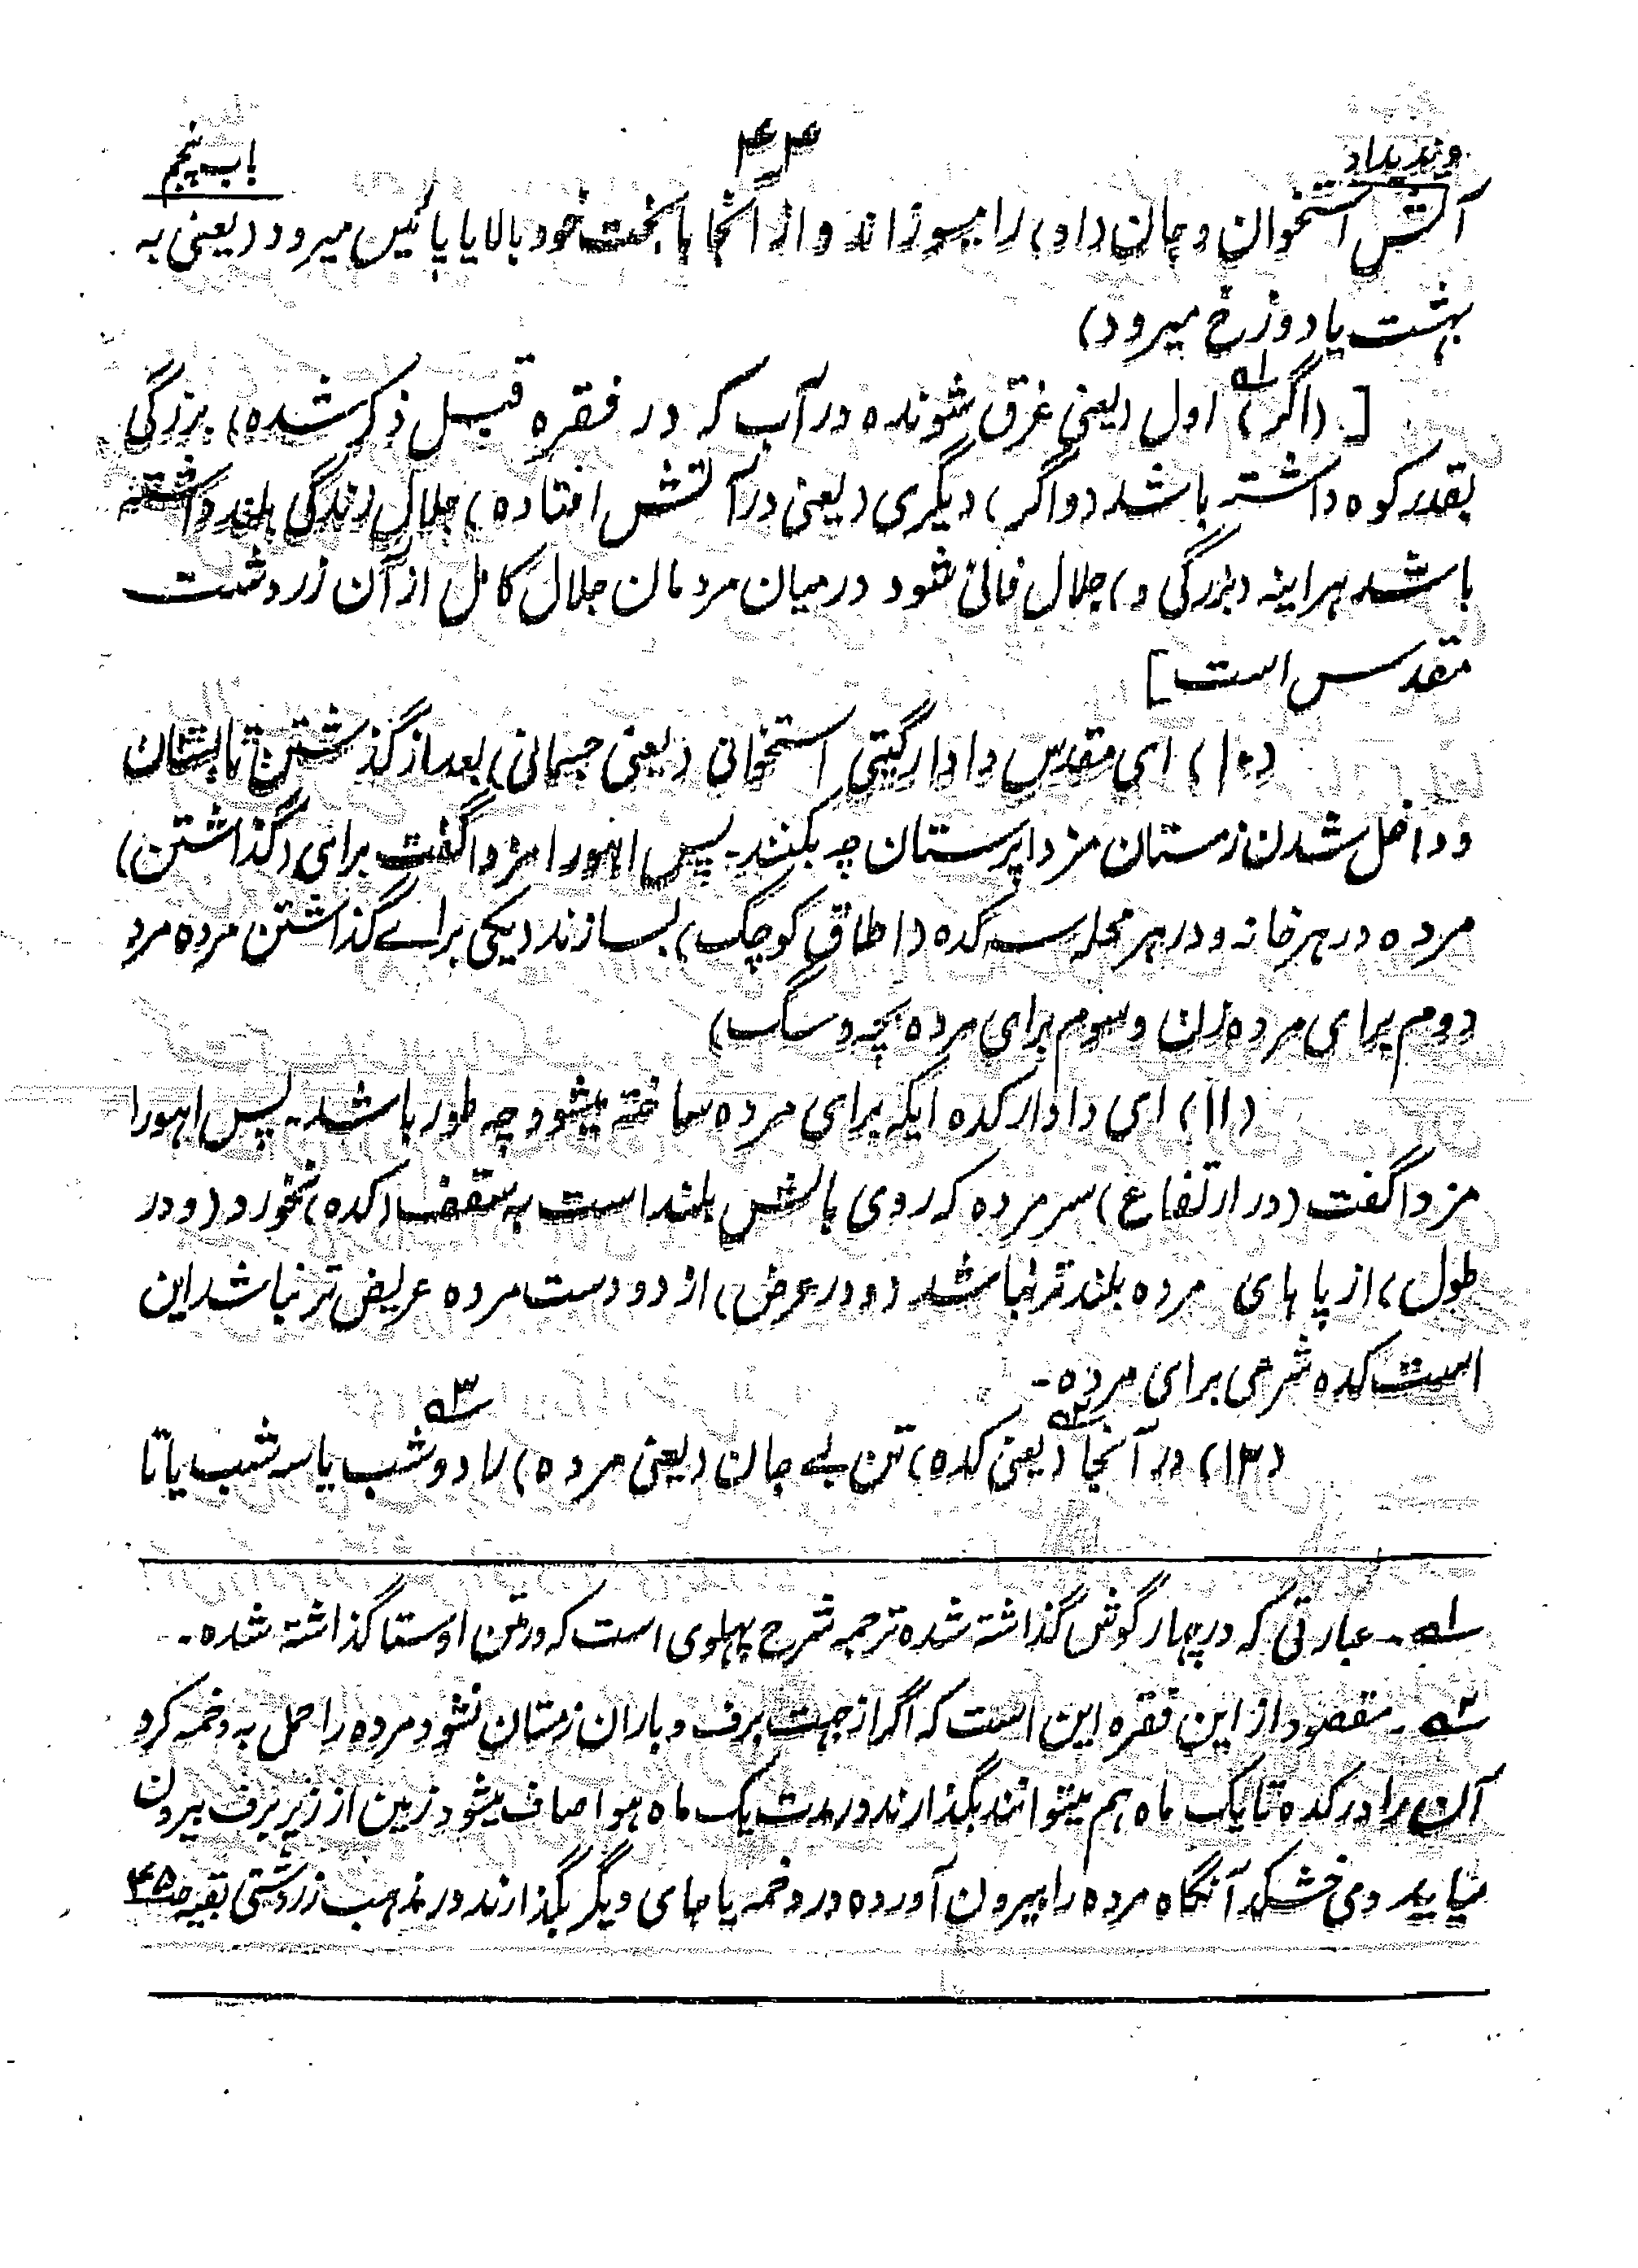 وندیداد ۴۴ باب پنجم
آتش استخوان و جان (او) را میسوزاند و از آنجا با بخت خود بالا یا پائین میرود (یعنی به
بهشت یا دوزخ میرود)
[ (اگر) ۱ اول (یعنی غرق شونده در آب که در فقره قبل ذکر شده) بزرگی
بقدر کوه داشته باشد (و اگر) دیگری (یعنی در آتش افتاده) جلال زندگی بلند داشته
باشد هر اینه (بزرگی و) جلال فانی شود در میان مردمان جلال کامل از آن زردشت
مقدس است ]
(۱۰) ای مقدس دادار گیتی استخوانی (یعنی جسمانی) بعد از گذشتن تابستان
و داخل شدن زمستان مزداپرستان چه بکنند۔ پس اهورا مزدا گفت برای (گذاشتن)
مرده در هر خانه و در هر محله سه کده (اطاق کوچک) بسازند (یکی برای گذاشتن مرده مرد
دوم برای مرده زن و سوم برای مرده بچه و سگ)
(۱۱) ای دادار کده ایکه برای مرده ساخته میشود چه طور باشد۔ پس اهورا
مزدا گفت (در ارتفاع) سر مرده که روی بالش بلند است به سقف (کده) نخورد (و در
طول) از پا های مرده بلندتر نباشد (و در عرض) از دو دست مرده عریض تر نباشد این
است کده شرعی برای مرده۔
(۱۲) در آنجا ۲ (یعنی کده) تن بے جان (یعنی مرده) را دو شب ۳ یا سه شب یا تا
۱ ۔ عبارتی که در چهار گوش گذاشته شده ترجمه شرح پهلوی است که در متن اوستا گذاشته شده۔
۲ ۔ مقصود از این فقره این است که اگر از جهت برف و باران زمستان نشود مرده را حمل به دخمه کرد
آن را در کده تا یک ماه هم میتوانند بگذارند در مدت یک ماه هوا صاف میشود زمین از زیر برف بیرون
میاید و می خشکد آنگاه مرده را بیرون آورده در دخمه یا جای دیگر بگذارند در مذهب زردشتی بقیه ص ۴۵